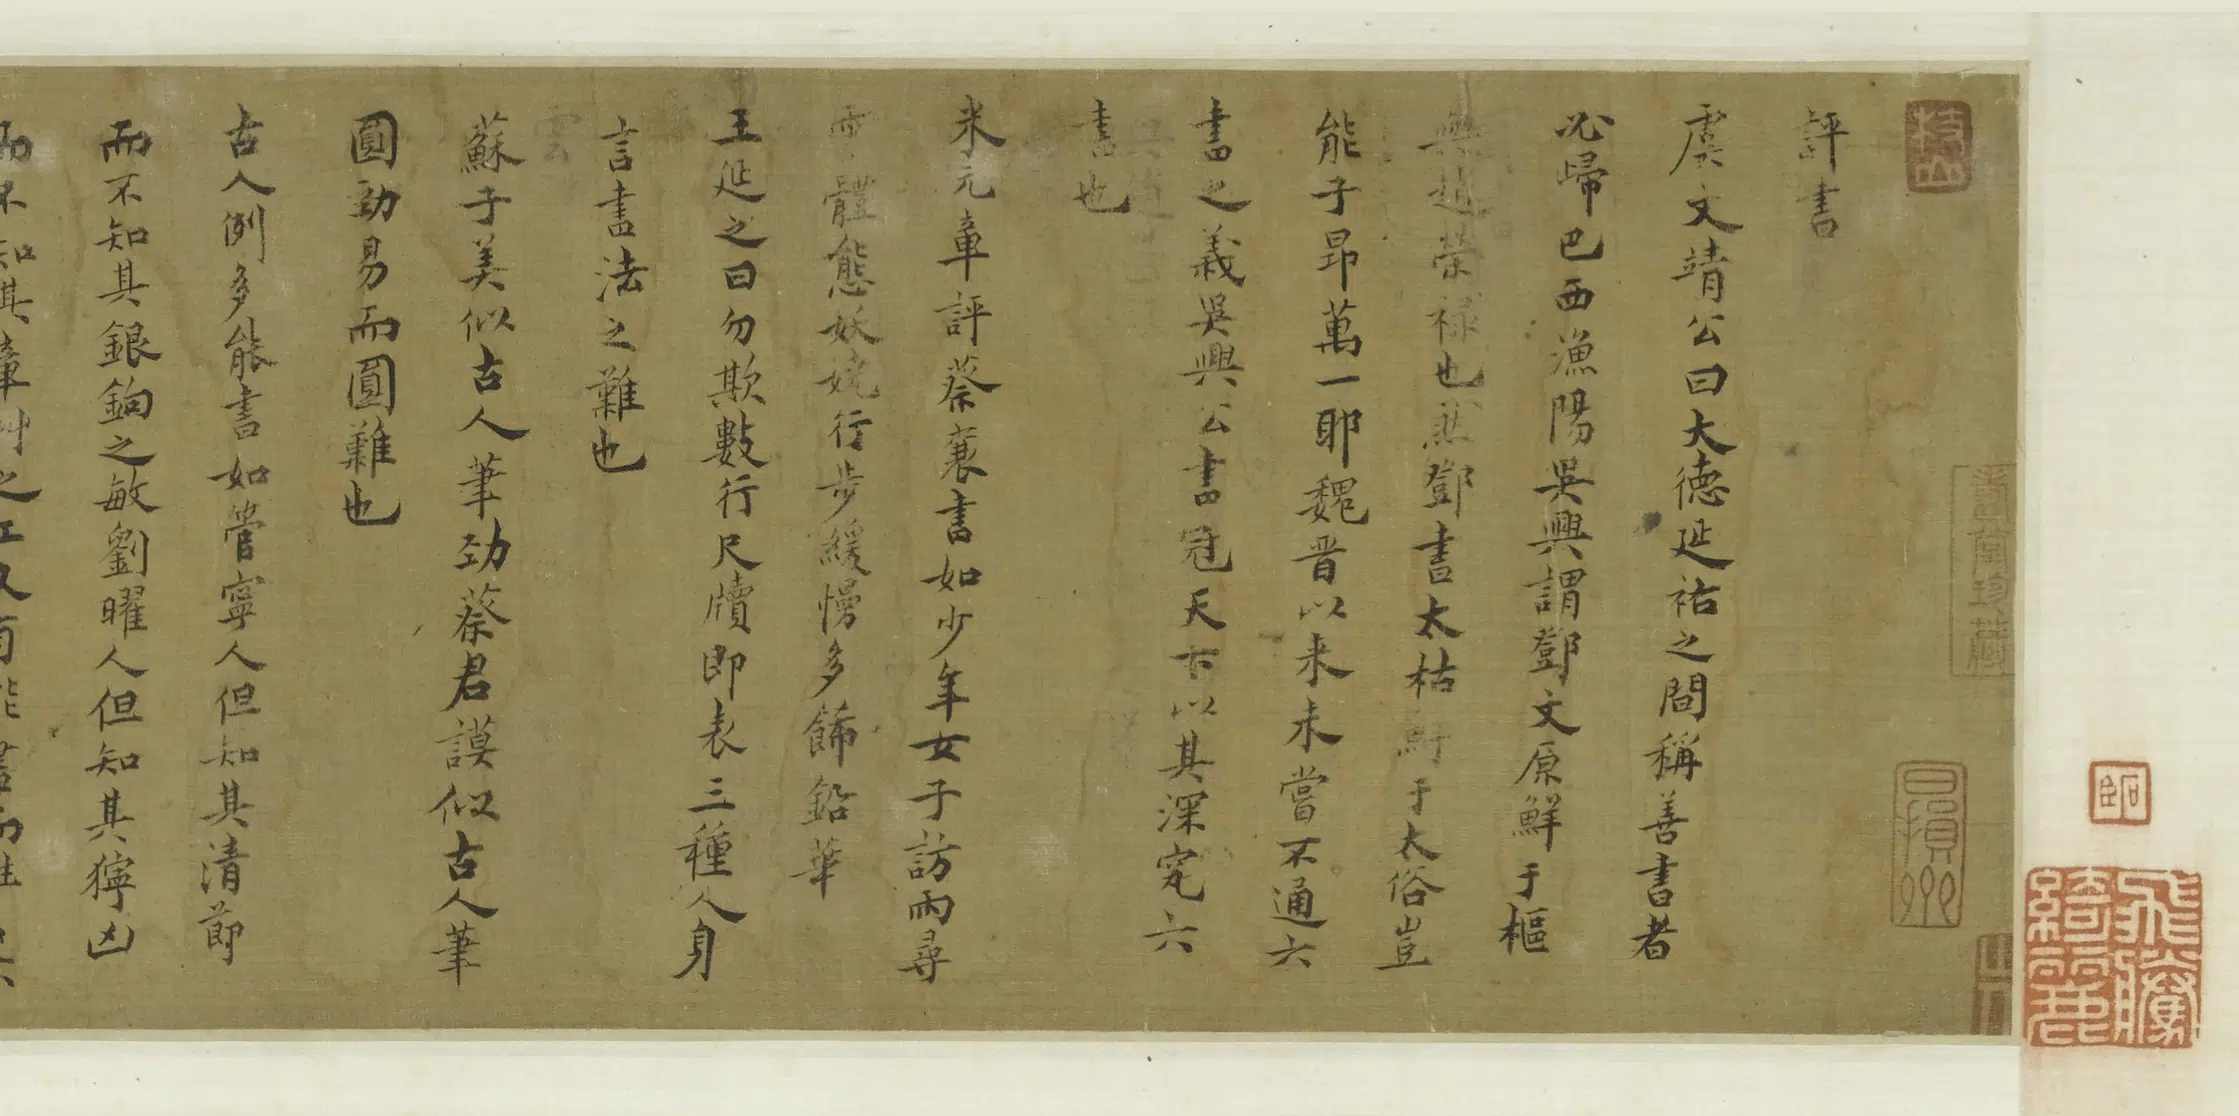 評書
虞文靖公曰大德延祐之間稱善書者
必歸巴西漁陽吳興謂鄧文原鮮于樞
與趙榮祿也然鄧書太枯鮮于太俗豈
能子昂萬一耶魏晉以來未嘗不通六
書之義吳興公書冠天下以其深究六
書也
米元章評蔡襄書如少年女子訪雨尋
雲體態妖嬈行步緩慢多飾鉛華
王延之曰勿欺數行尺牘即表三種人身
言書法之難也
蘇子美似古人筆勁蔡君謨似古人筆
圓勁易而圓難也
古人例多能書如管寧人但知其清節
而不知其銀鉤之敏劉曜人但知其獰凶
而不知其章草之工